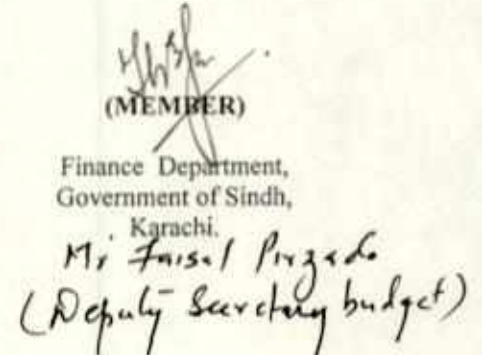 (MEMBER)
Finance Department,
Government of Sindh,
Karachi.
Mr Faisal Pirzado
(Deputy Secretary budget)